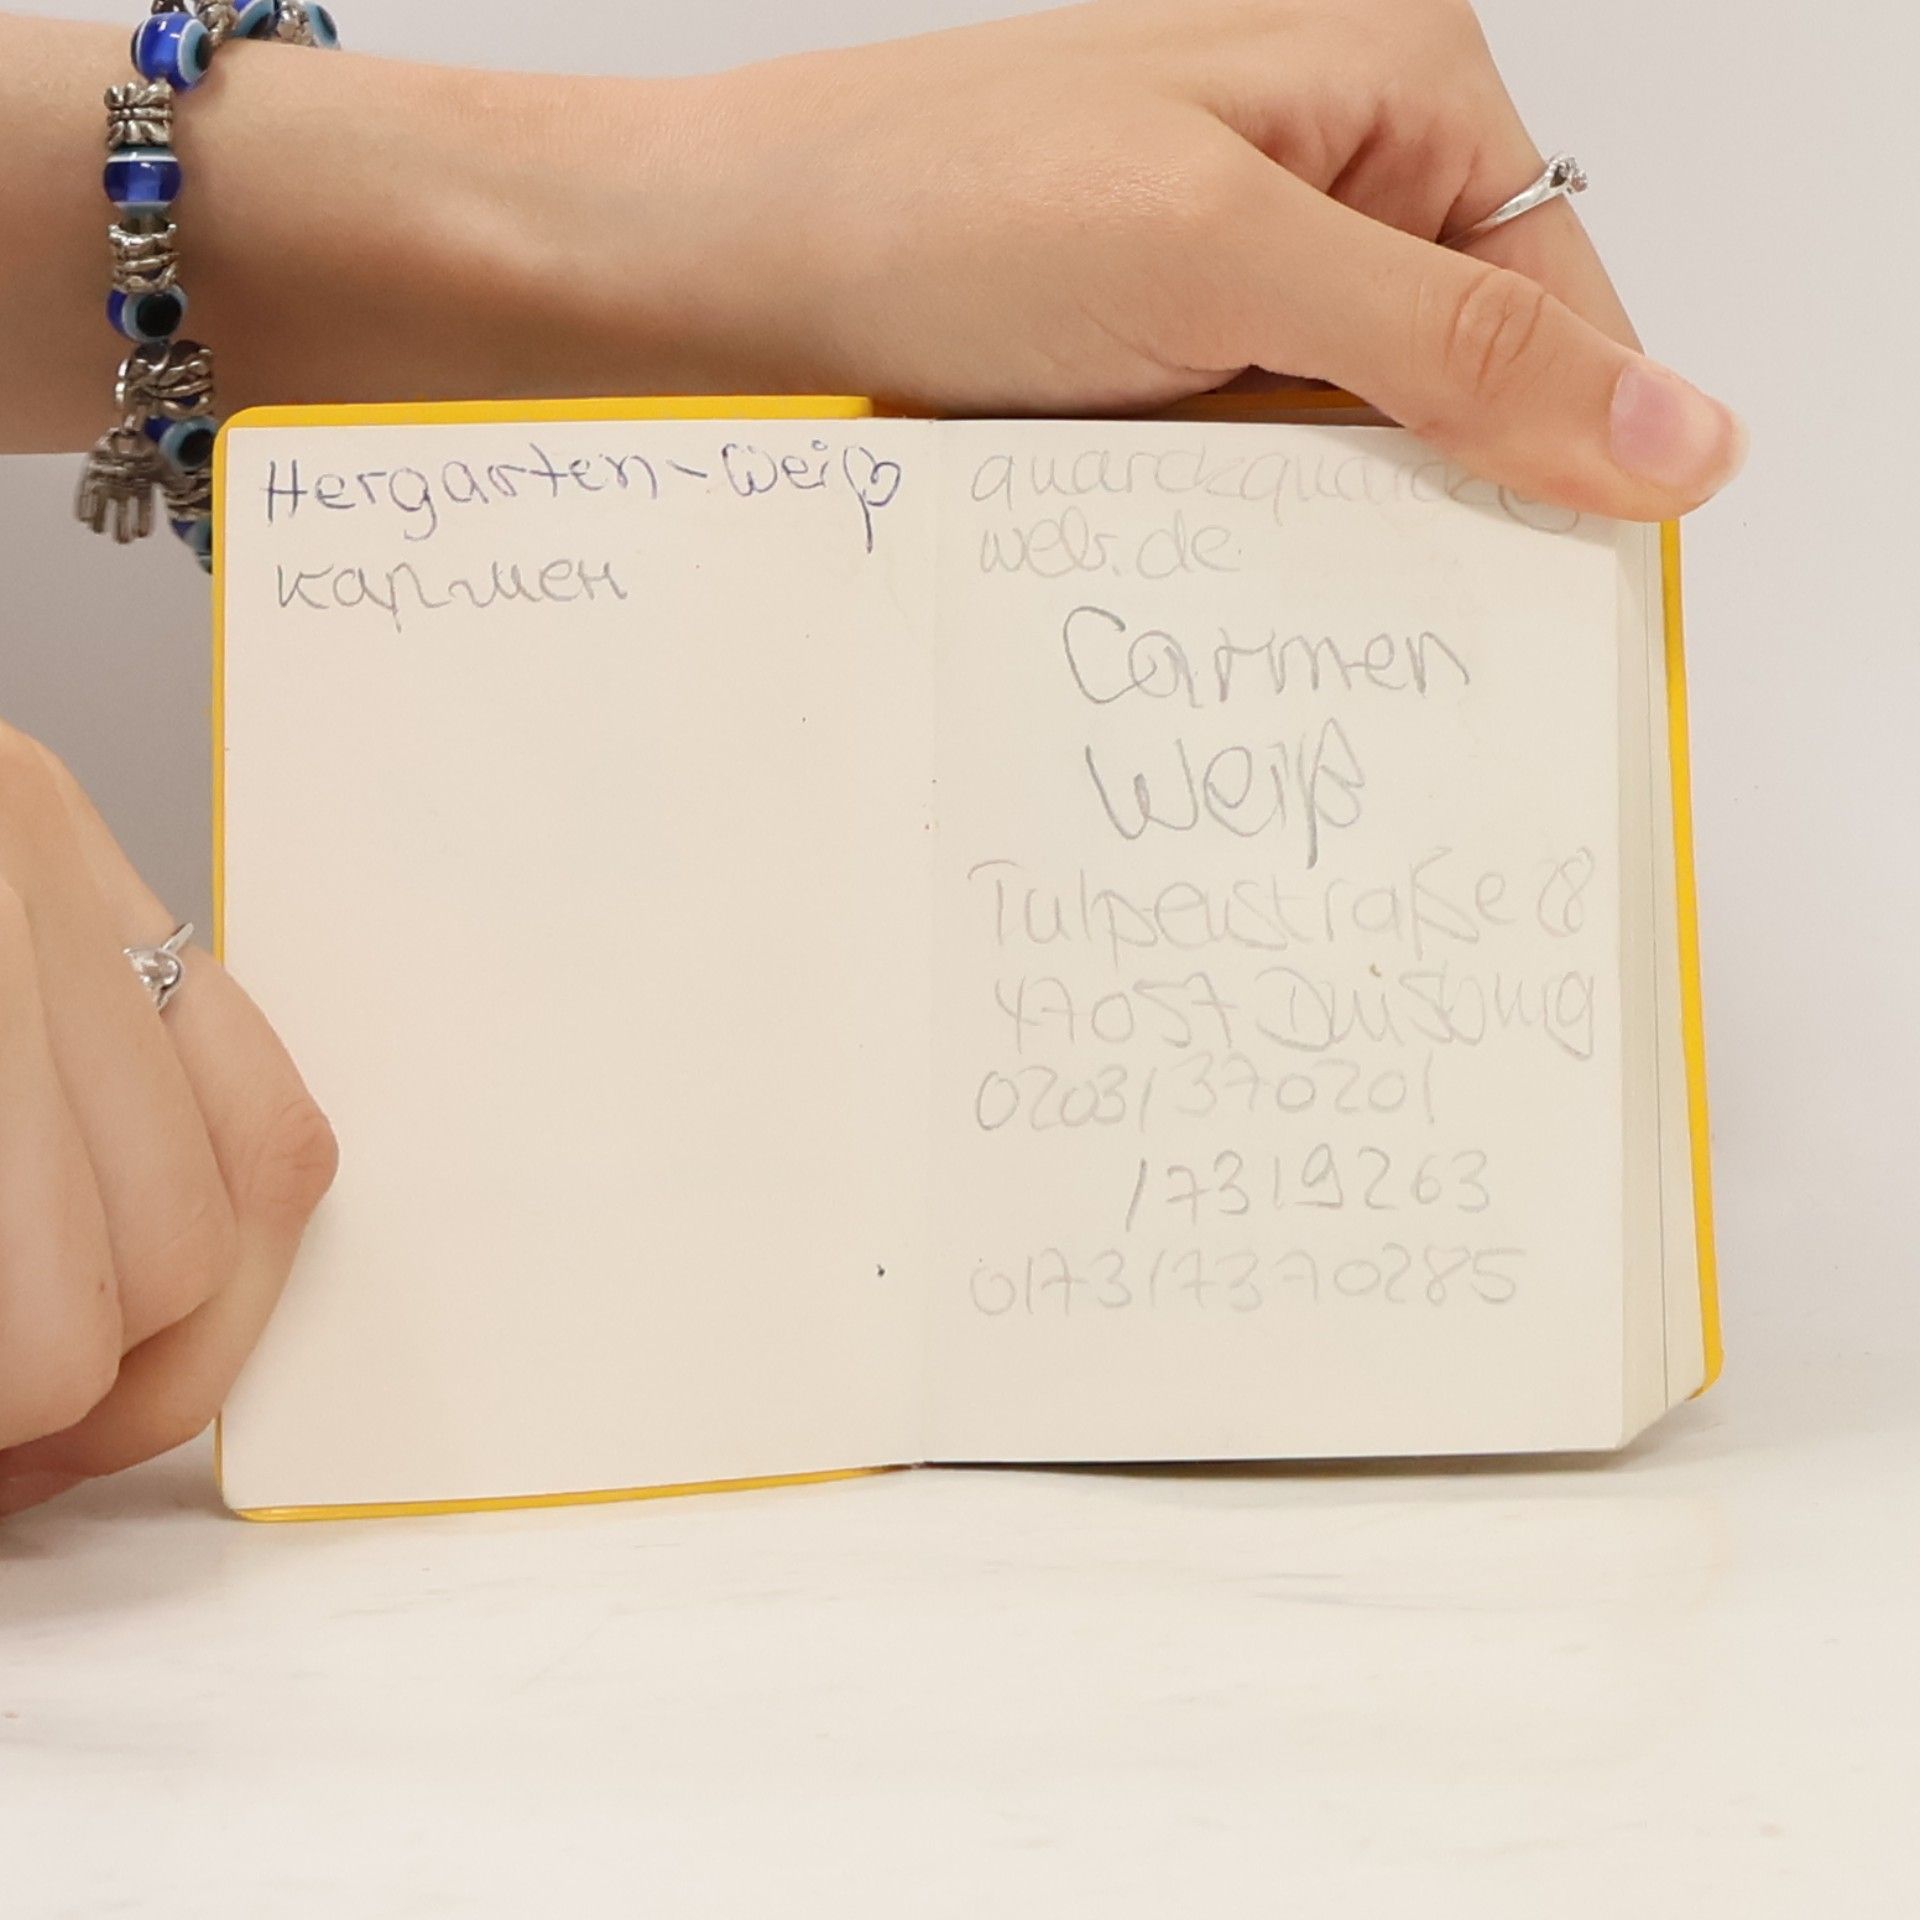 Hergarten-Weiß
кармен
quarckquarck@
web.de
Carmen
Weiß
Tulpenstraße 28
47057 Duisburg
0203/370201
/7319263
0173/7370285